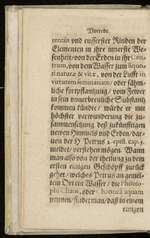 Vorrede.
remûn und eusserster Ründen der
Elementen in ihre innerste We-
senheit/von der Erden in ihr Cen-
trum, von dem Wasser zum liquo-
ri naturæ & vitæ, von der Lufft in
virtutem seminariam, oder fähmli-
che fortpflantzung/ vom Fewer
in sein unverbrenliche Substantz
kommen könde/ würde er mit
höchster verwunderung die zu-
sammensetzung deß zukünfftigen
newen Himmels und Erden/ dar-
von der H. Petrus 2. epist. cap. 3.
meldet/ verstehen mögen. Wann
man also von der theilung in dem
ersten ewigen Geschöpff zurück
gehet/ welches Petrus an gemel-
tem Ort ein Wasser/
nennen/ sintemal/ daß in einem
einigen